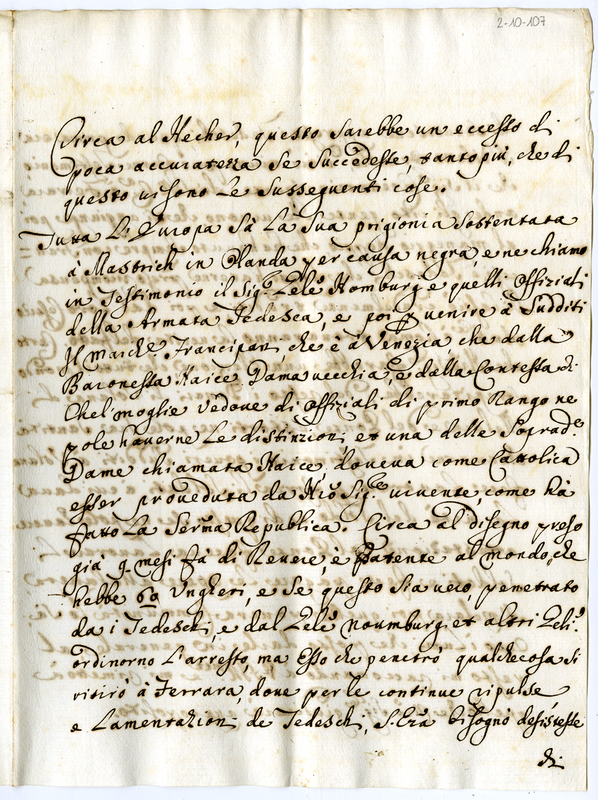 2-10-107
Circa al Hecher, questo sarebbe un eccesso di
poca accuratezza se succedesse, tanto più, che di
questo vi sono le susseguenti cose.
Tutta L'Europa sà La sua prigionia sostentata
à Mastrich in Olanda per causa negra, e ne chiamo
in Testimonio il Sig.r Homburg e quelli Offiziali
della Armata Tedesca, e poi venire à Sudditi
Il March.e Francipani, che è à Venezia che dalla
Baronessa Haice Dama vecchia, e dalla Contessa di
Chel moglie vedove di Offiziali di primo Rango ne
pole haverne Le distinzioni et una delle Soprad.e
Dame chiamata Haice, doveva come Cattolica
esser proveduta da Nrõ Sig.re vivente, come hà
fatto La Serm̃a Republica. Circa al disegno preso
già 9 mesi fà di Revere, è Patente al mondo, che
hebbe 60 Ungheri, e se questo sia vero, penetrato
da i Tedeschi, e dal noumburg et altri
ordinorno L'arresto, ma Esso che penetrò qualche cosa si
ritirò à Ferrara, dove per le continue ripulse
e Lamentazioni de Tedeschi, S. Erã bisognò desistesse
di